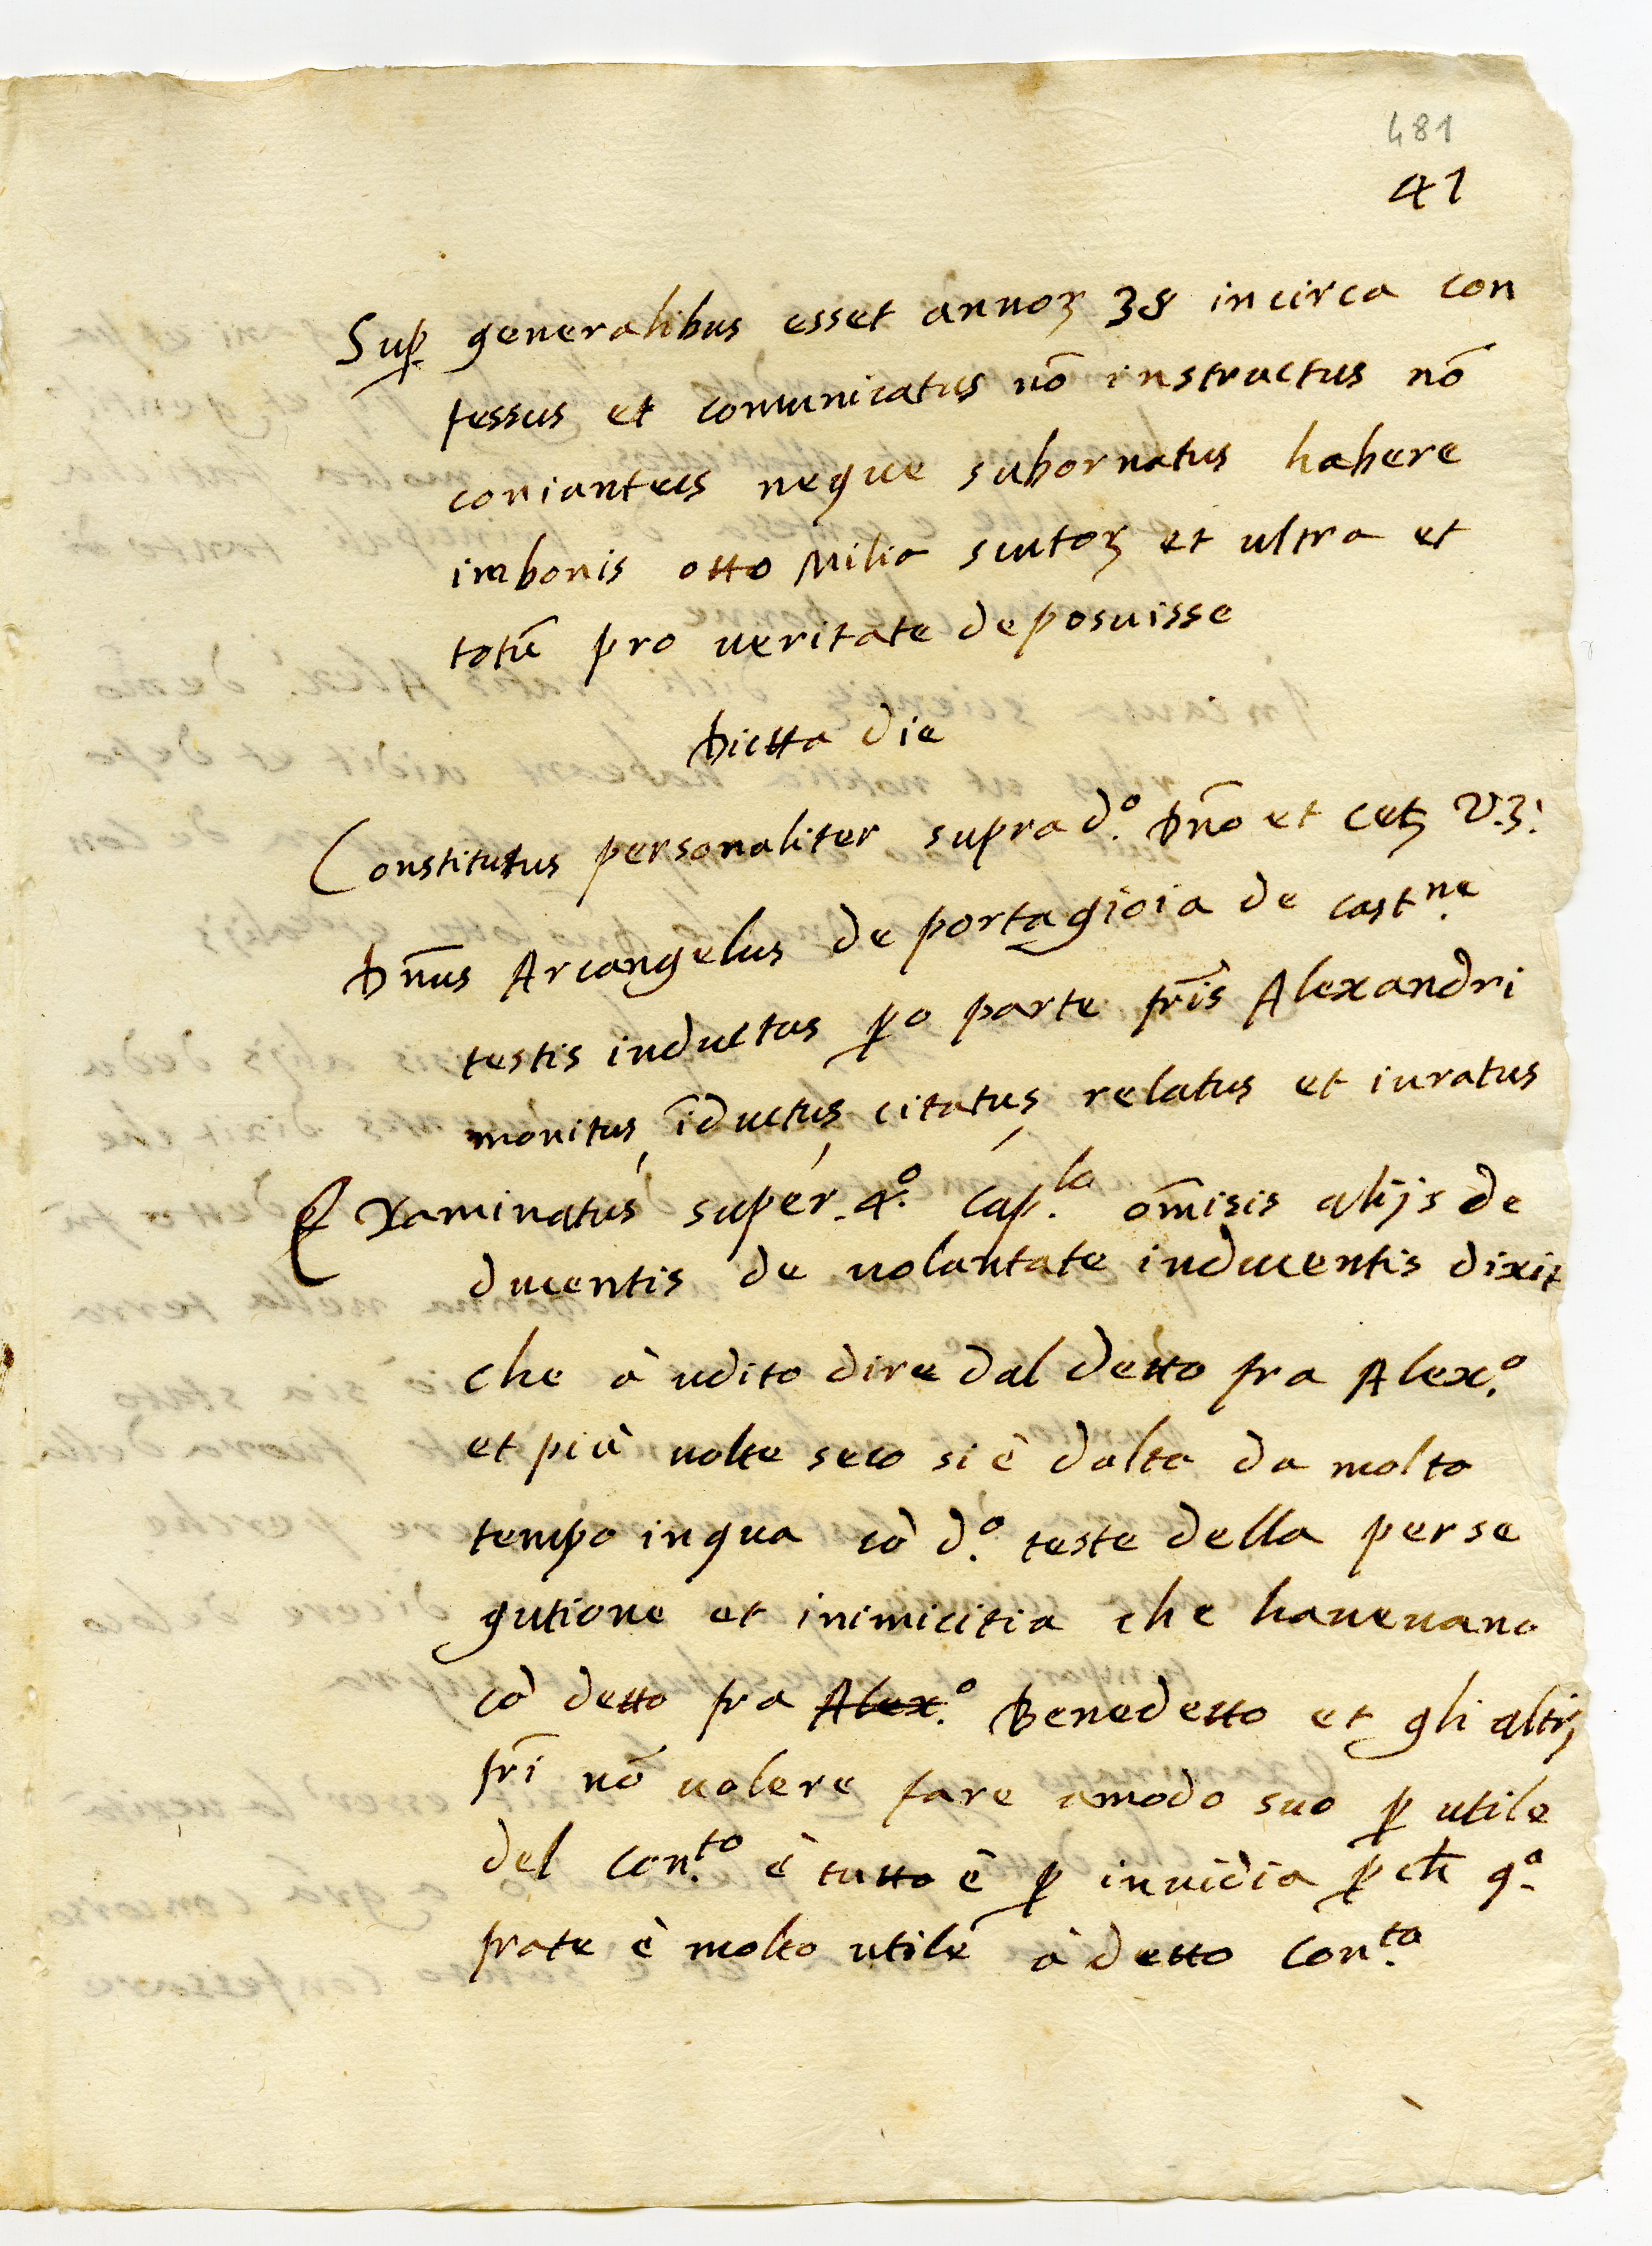 481
41
Sup generalibus esset annoꝝ 38 incirca con
fessus et comunicatus nō instructus nō
coniunteus neque subornatus habere
imbonis otto Milia scutoꝝ et ultra et
totū pro ueritate deposuisse
Dictta die
Constitutus personaliter suprad.º Dnō et cetꝫ V.3:
Dnūs Arcangelus de portagioia de cast.ne
testis inductus ꝓ parte frīs Alexandri
monitus, īductus, citatus, relatus et iuratus
Examinatus super .4.º Cap.lo omīsis alijs de
ducentis de uoluntate inducentis dixit
che à udito dire dal detto fra Alex.º
et più uolte seco si è dolto da molto
tempo inqua cō d.º teste della perse
gutione et inimicitia che haueuano
cō detto fra Alex.º Benedetto et gli altrj
frī nō uolere fare amodo suo ꝑ utile
del Con.to è tutto è ꝑ inuidia ꝑch q.º
frate è molto utile à detto Con.to